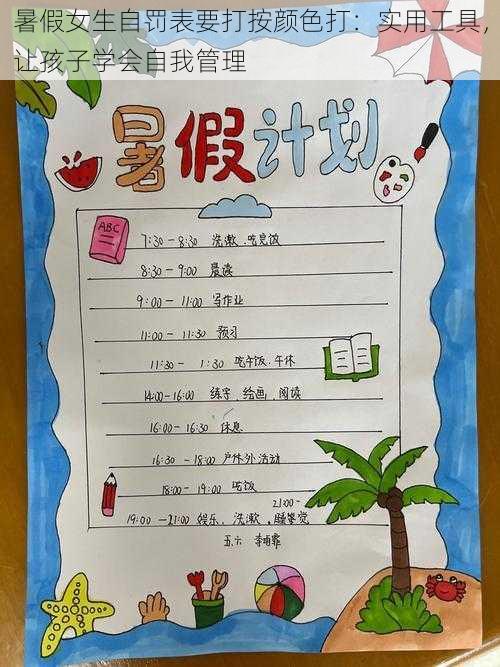 暑假女生自罚表要打按颜色打：实用工具，
让孩子学会自我管理
暑假计划
ABC
7:30-8:30 洗漱.吃早饭
8:30-9:00 晨读
9:00-11:00 写作业
11:00-11:30 预习
11:30-1:30 吃午饭.午休
14:00-16:00 练字.绘画.阅读
16:00-16:30 休息
16:30-18:00 户外活动
18:00-19:00 吃饭
19:00-21:00 娱乐、洗漱，21:00- 睡觉觉
五.六